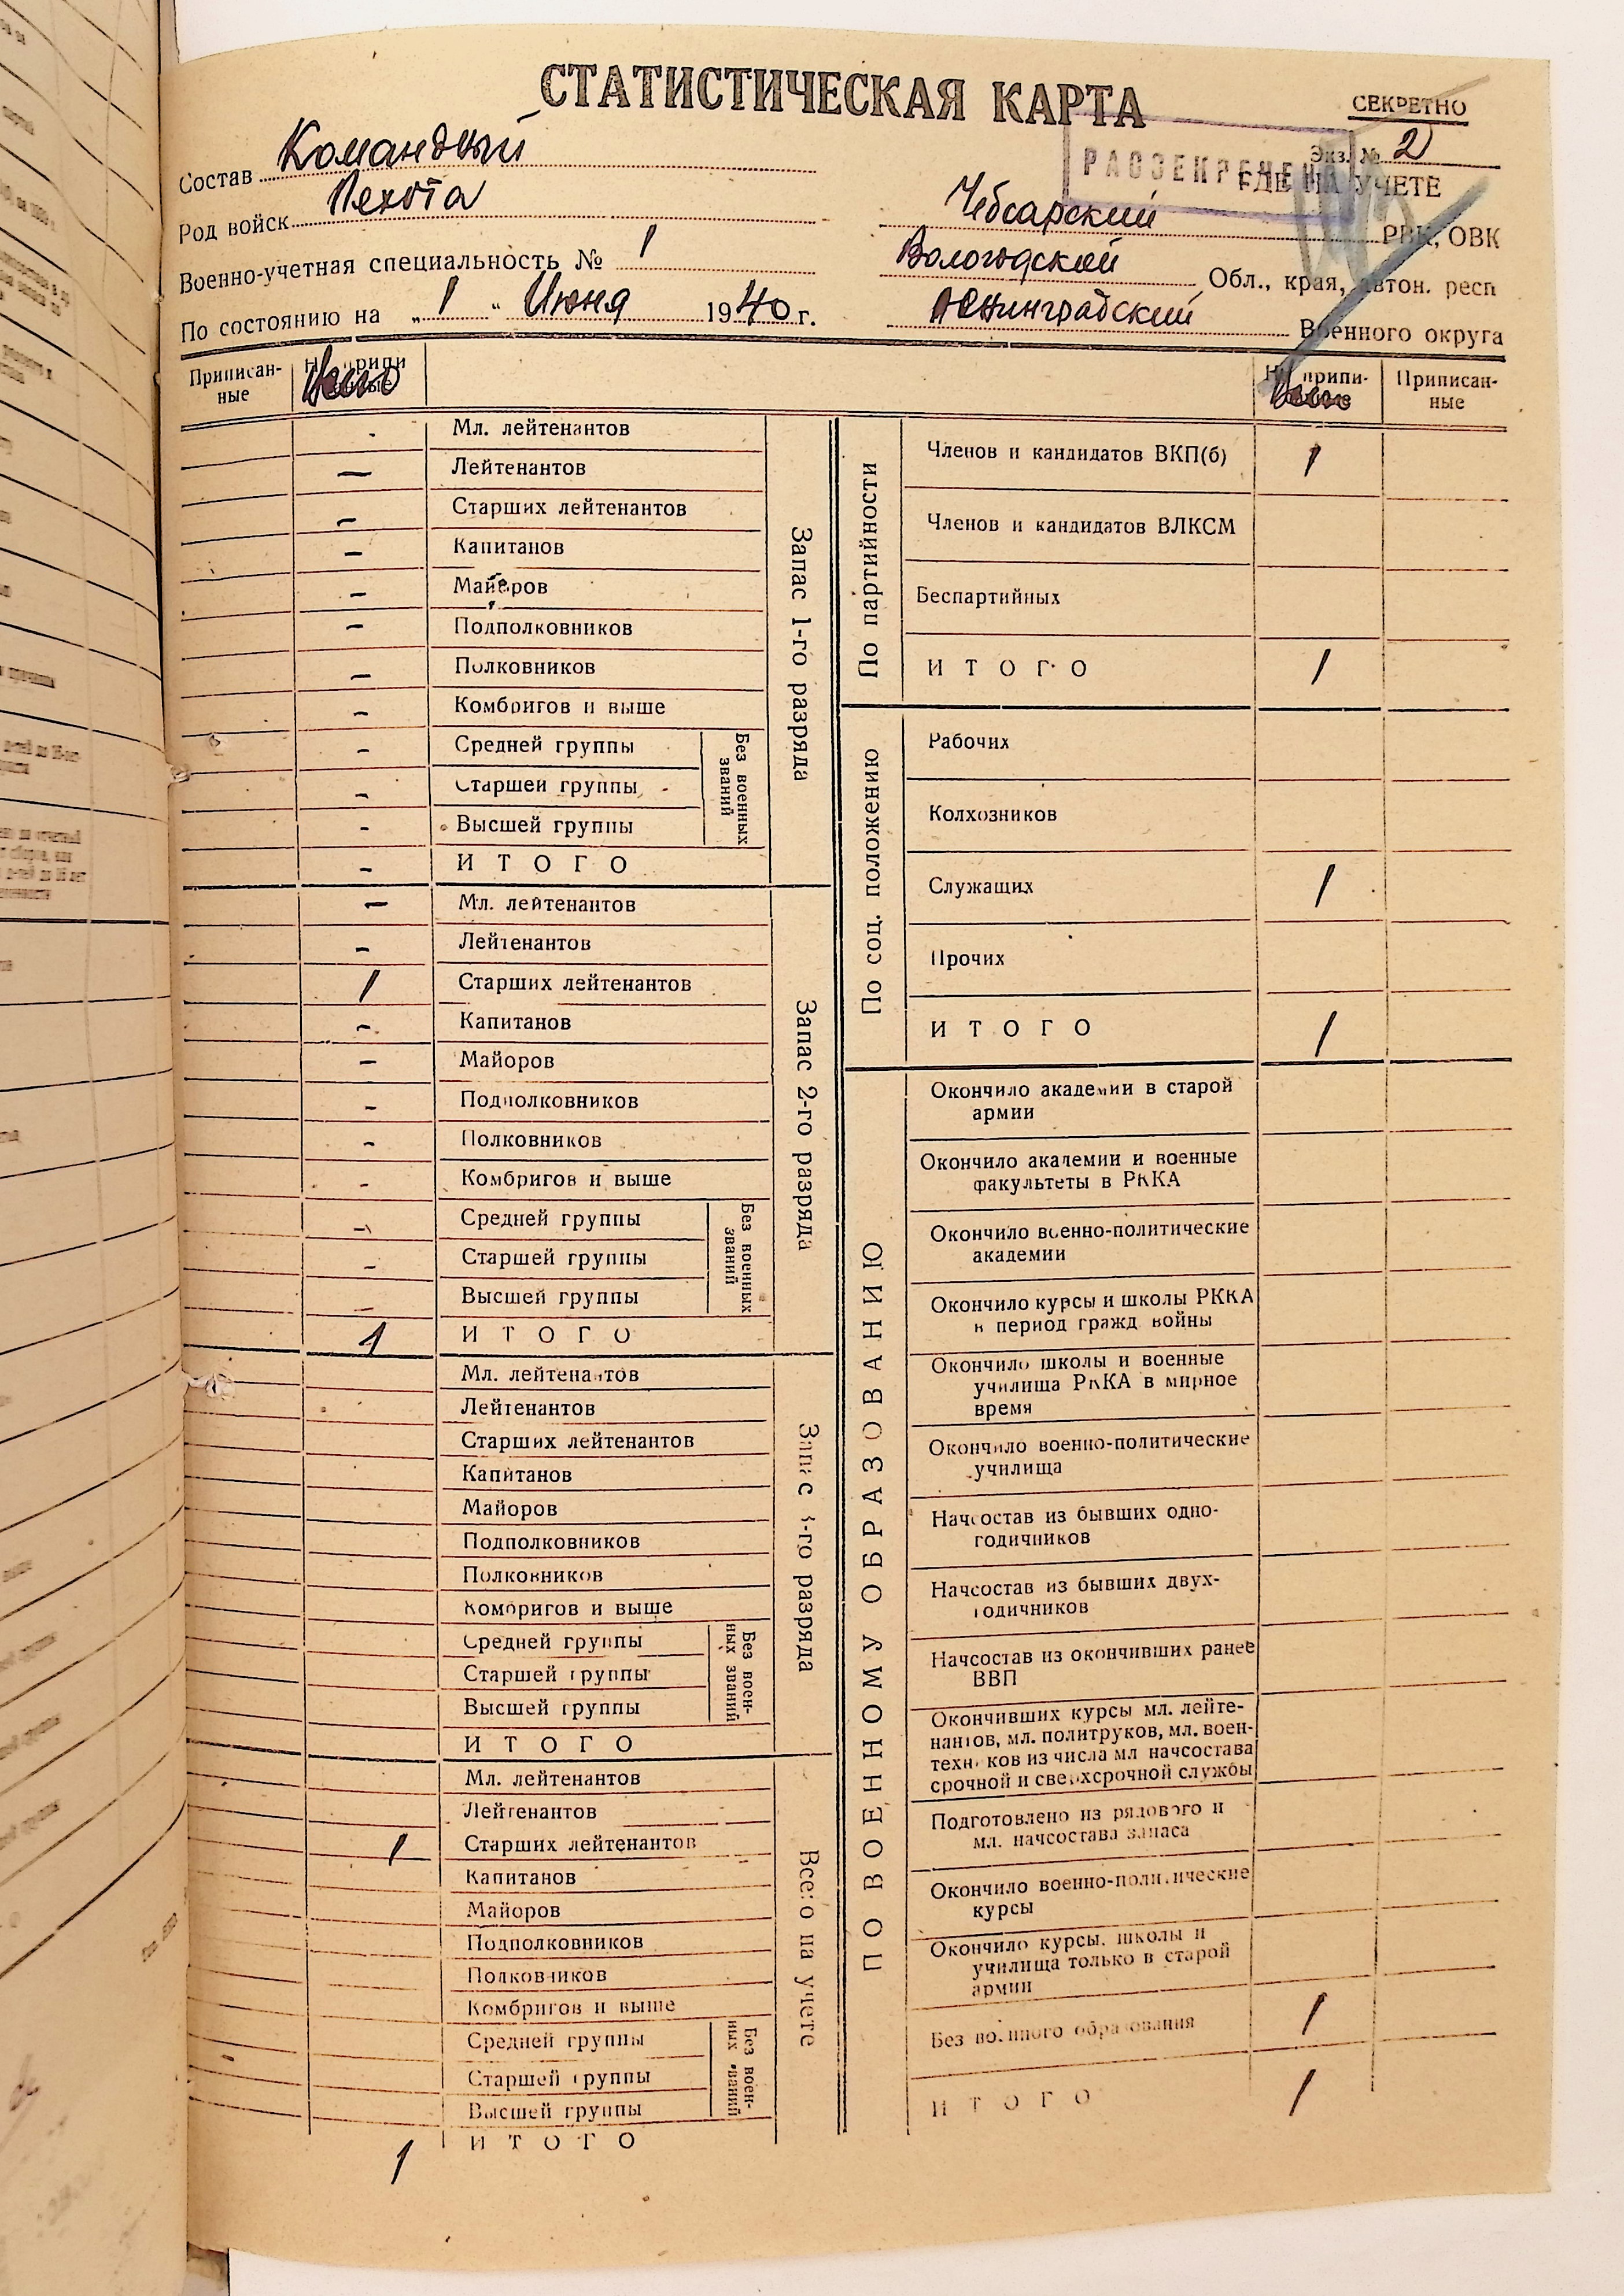 СТАТИСТИЧЕСКАЯ КАРТА
СЕКРЕТНО
Экз. № 2
РАССЕКРЕЧЕНО
ГДЕ НА УЧЕТЕ
Состав Командный
Род войск Пехота
Военно-учетная специальность № 1
По состоянию на „ 1 “ Июня 1940 г.
Чебсарский РВК, ОВК
Вологодской Обл., края, автон. респ
Ленинградский Военного округа
Приписан-
ные
Не припи
санные
Всего
Не припи-
Всего
Приписан-
ные
Запас 1-го разряда
- Мл. лейтенантов
- Лейтенантов
- Старших лейтенантов
- Капитанов
- Майоров
- Подполковников
- Полковников
- Комбригов и выше
Без военных
званий
- Средней группы
- Старшей группы
- Высшей группы
- ИТОГО
Запас 2-го разряда
- Мл. лейтенантов
- Лейтенантов
1 Старших лейтенантов
- Капитанов
- Майоров
- Подполковников
- Полковников
- Комбригов и выше
Без военных
званий
- Средней группы
- Старшей группы
- Высшей группы
1 ИТОГО
Запас 3-го разряда
Мл. лейтенантов
Лейтенантов
Старших лейтенантов
Капитанов
Майоров
Подполковников
Полковников
Комбригов и выше
Без воен-
ных званий
Средней группы
Старшей группы
Высшей группы
ИТОГО
Всего на учете
Мл. лейтенантов
Лейтенантов
1 Старших лейтенантов
Капитанов
Майоров
Подполковников
Полковников
Комбригов и выше
Без воен-
ных званий
Средней группы
Старшей группы
Высшей группы
1 ИТОГО
По партийности
Членов и кандидатов ВКП(б) 1
Членов и кандидатов ВЛКСМ
Беспартийных
ИТОГО 1
По соц. положению
Рабочих
Колхозников
Служащих 1
Прочих
ИТОГО 1
ПО ВОЕННОМУ ОБРАЗОВАНИЮ
Окончило академии в старой
армии
Окончило академии и военные
факультеты в РККА
Окончило военно-политические
академии
Окончило курсы и школы РККА
в период гражд войны
Окончило школы и военные
училища РККА в мирное
время
Окончило военно-политические
училища
Начсостав из бывших одно-
годичников
Начсостав из бывших двух-
годичников
Начсостав из окончивших ранее
ВВП
Окончивших курсы мл. лейте-
нантов, мл. политруков, мл. воен-
техников из числа мл начсостава
срочной и сверхсрочной службы
Подготовлено из рядового и
мл. начсостава запаса
Окончило военно-политические
курсы
Окончило курсы, школы и
училища только в старой
армии
Без военного образования 1
ИТОГО 1